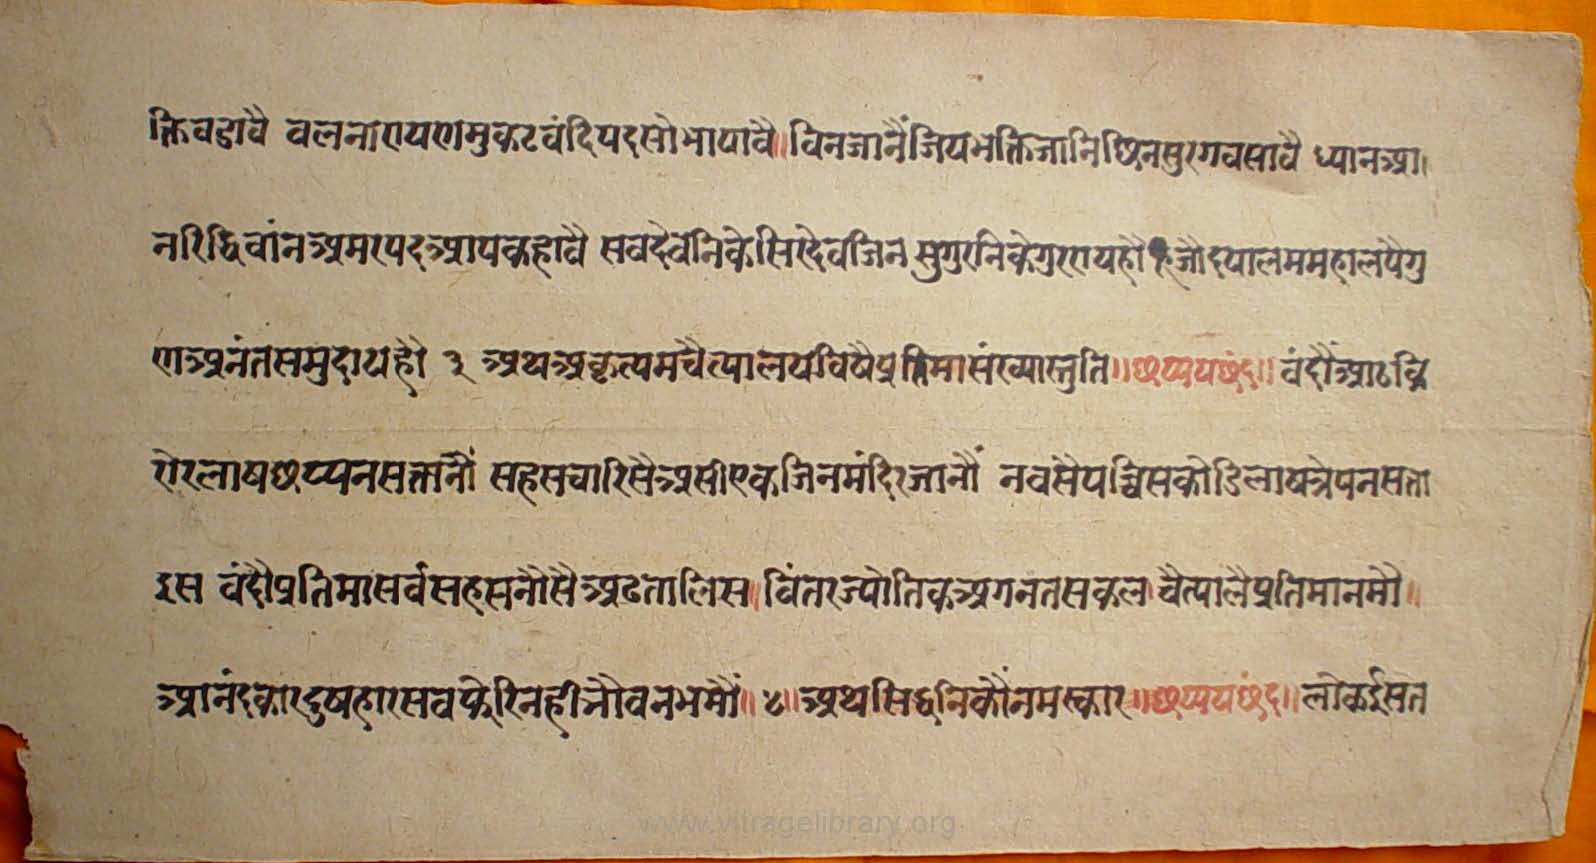 क्तिवढावै वलनारायणमुकटवंदिपदसोभापावै॥विनजानैंजियभक्तिजानिछिनसुरगवसावै ध्यानआ।
नरिद्धिवांनअमरपदआपकहावै सवदेवनिकेसिरदेवजिन सुगुरनिकेगुररायहौ हूजौदयालममहालपैगु
णअनंतसमुदायहौ ३ अथअकृत्यमचैत्यालयविषैप्रतिमासंख्यास्तुति॥छप्पयछंद॥ वंदौंआठकि
रोरलाषछप्पनसत्तानौं सहसचारिसैअसीएकजिनमंदिरजानौं नवसैपच्चिसकोडिलाषत्रेपनसत्ता
इस वंदौप्रतिमासर्वसहसनौसैअढतालिस॥विंतरज्योतिकअगनतसकल चैत्यालैप्रतिमानमौ॥
आनंदकारदुषहारसवफेरिनहीभौवनभमौं॥४॥अथसिद्धनिकौंनमस्कार॥छप्पयछंद॥लोकईसत
www.vitragelibrary.org